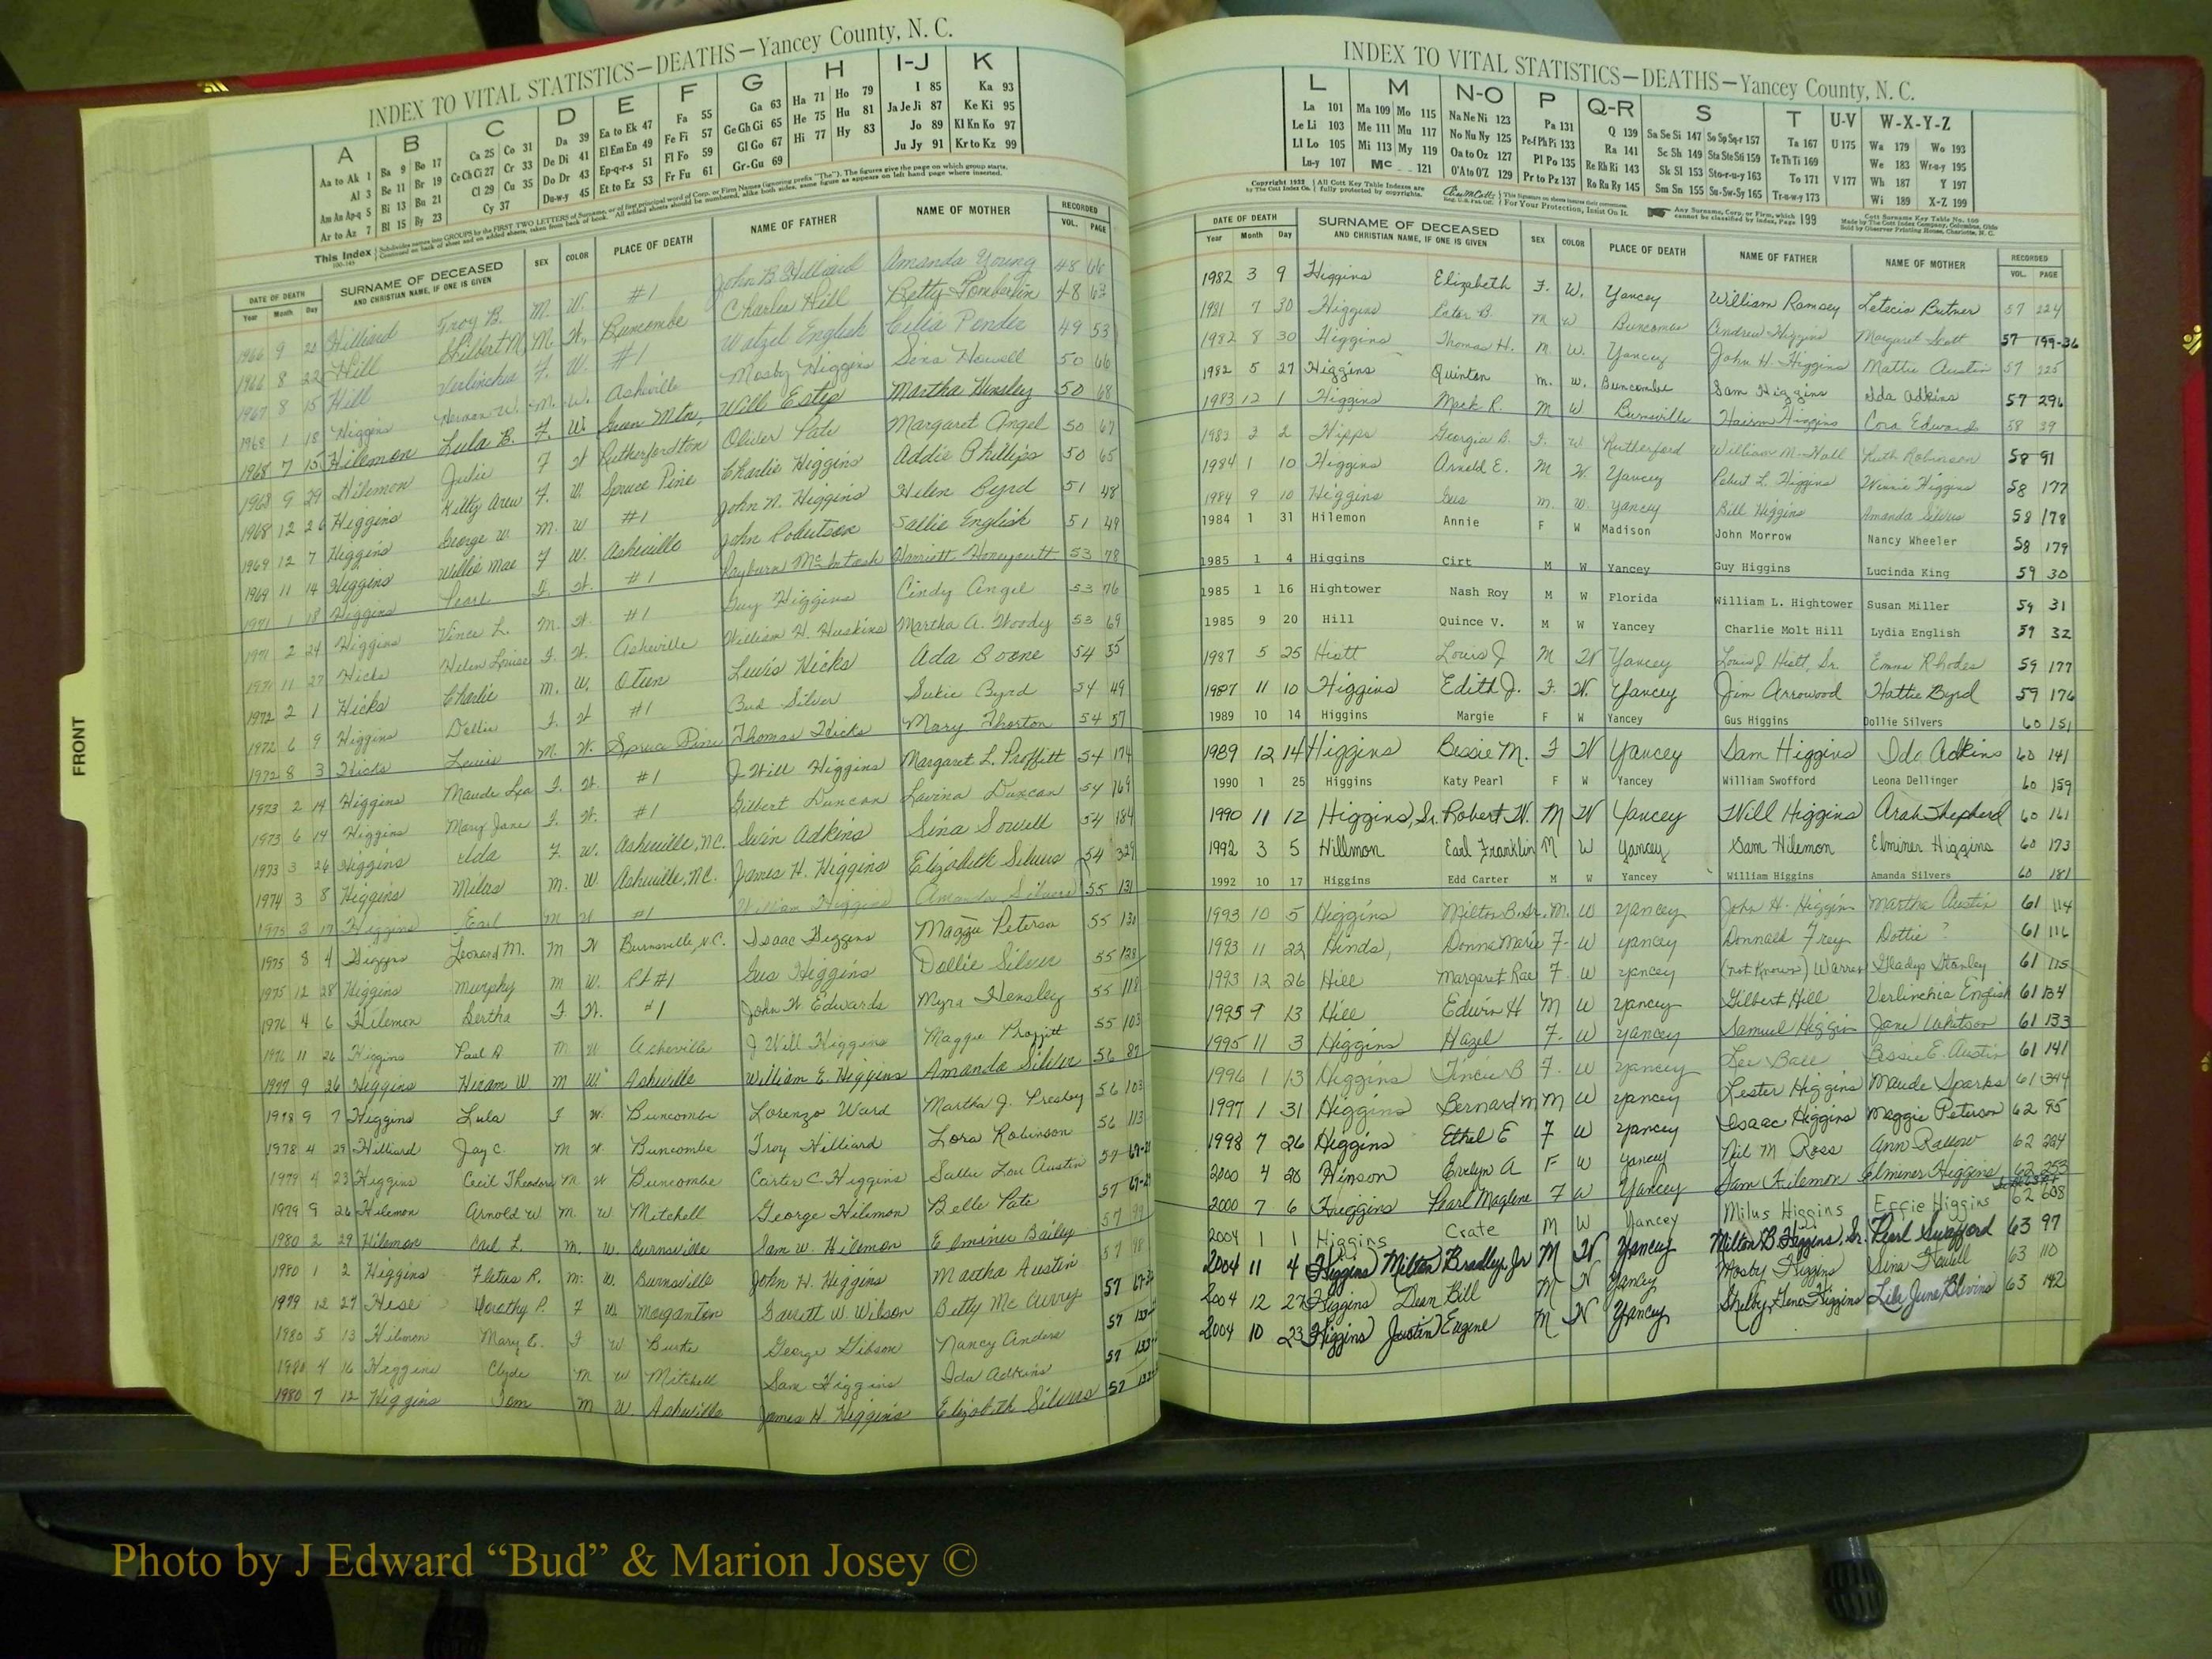 INDEX TO VITAL STATISTICS—DEATHS—Yancey County, N. C.
A B C D E F G H I-J K
Aa to Ak 1 Ba 9 Bo 17 Ca 25 Co 31 Da 39 Ea to Ek 47 Fa 55 Ga 63 Ha 71 Ho 79 I 85 Ka 93
Al 3 Be 11 Br 19 Ce Ch Ci 27 Cr 33 De Di 41 El Em En 49 Fe Fi 57 Ge Gh Gi 65 He 75 Hu 81 Ja Je Ji 87 Ke Ki 95
Am An Ap-q 5 Bi 13 Bu 21 Cl 29 Cu 35 Do Dr 43 Ep-q-r-s 51 Fl Fo 59 Gl Go 67 Hi 77 Hy 83 Jo 89 Kl Kn Ko 97
Ar to Az 7 Bl 15 By 23 Cy 37 Du-w-y 45 Et to Ez 53 Fr Fu 61 Gr-Gu 69 Ju Jy 91 Kr to Kz 99
This Index
DATE OF DEATH SURNAME OF DECEASED SEX COLOR PLACE OF DEATH NAME OF FATHER NAME OF MOTHER RECORDED
Year Month Day AND CHRISTIAN NAME, IF ONE IS GIVEN VOL. PAGE
1966 9 20 Hilliard Troy B. M. W. #1 John B. Hilliard Amanda Young 48 66
1966 8 22 Hill M. W. Buncombe Charles Hill Betty Tomberlin 48 63
1967 8 15 Hill Verlinchia F. W. #1 Watzel English Celia Ponder 49 53
1968 1 18 Higgins M. W. Asheville Mosby Higgins Sena Howell 50 66
1968 7 15 Hilemon Lula B. F. W. Green Mtn. Will Estep Martha Hensley 50 68
1968 9 29 Hilemon Julie F W Rutherfordton Oliver Pate Margaret Angel 50 67
1968 12 26 Higgins Kitty F. W. Spruce Pine Charlie Higgins Addie Phillips 50 65
1969 12 7 Higgins George W. M. W #1 John N. Higgins Helen Byrd 51 48
1969 11 14 Higgins Willie Mae F W. Asheville John Robertson Sallie English 51 49
1971 1 18 Higgins Pearl F. W. #1 Rayburn McIntosh Harriett Honeycutt 53 78
1971 2 24 Higgins Vince L. M. W. #1 Guy Higgins Cindy Angel 53 76
1971 11 27 Hicks Helen Louise F. W. Asheville William H. Huskins Martha A. Woody 53 69
1972 2 1 Hicks Charlie M. W. Oteen Lewis Hicks Ada Boone 54 35
1972 6 9 Higgins Dellie F. W #1 Bud Silver Sukie Byrd 54 49
1972 8 3 Hicks Lewis M. W. Spruce Pine Thomas Hicks Mary Thorton 54 57
1973 2 14 Higgins Maude Lea F. W. #1 J Will Higgins Margaret L. Proffitt 54 174
1973 6 14 Higgins Mary Jane F. W. #1 Gilbert Duncan Lavina Duncan 54 169
1973 3 26 Higgins Ada F. W. Asheville, NC. Adkins Sina 54 184
1974 3 8 Higgins Milas M. W Asheville, NC. James H. Higgins Elizabeth Silvers 54 329
1975 3 17 Higgins Earl M W #1 William Higgins Amanda Silvers 55 131
1975 8 4 Higgins Leonard M. M W Burnsville, N.C. Isaac Higgins Maggie Peterson 55 130
1975 12 28 Higgins Murphy M W. Rt #1 Gus Higgins Dollie Silver 55 128
1976 4 6 Hilemon Bertha F. W. #1 John W. Edwards Myra Hensley 55 118
1976 11 26 Higgins Paul R M W Asheville J Will Higgins Maggie Proffitt 55 103
1977 9 26 Higgins Hiram W M W. Asheville William E. Higgins Amanda Silver 56 82
1978 9 7 Higgins Lula F W. Buncombe Lorenzo Ward Martha J. Presley 56 103
1978 4 29 Hilliard Jay C. M W. Buncombe Troy Hilliard Lora Robinson 56 113
1979 4 23 Higgins Cecil Theodore M W Buncombe Carter C. Higgins Sallie Lou Austin 57
1979 9 26 Hilemon Arnold W M. W Mitchell George Hilemon Belle Pate 57
1980 2 29 Hilemon Carl L. M. W. Burnsville Sam W. Hilemon Elminer Bailey 57 99
1980 1 2 Higgins Fletus R. M. W. Burnsville John H. Higgins Martha Austin 57 98
1979 12 27 Hise Dorothy P. F W. Morganton Garrett W. Wilson Betty McCurry 57
1980 5 13 Hilemon Mary E. F W Burke George Gibson Nancy Anders 57
1980 4 16 Higgins Clyde M W Mitchell Sam Higgins Ida Adkins 57
1980 7 12 Higgins Tom M W Asheville James H. Higgins Elizabeth Silvers 57
FRONT
INDEX TO VITAL STATISTICS—DEATHS—Yancey County, N. C.
L M N-O P Q-R S T U-V W-X-Y-Z
La 101 Ma 109 Mo 115 Na Ne Ni 123 Pa 131 Q 139 Sa Se Si 147 So Sp Sq-r 157 Ta 167 U 175 Wa 179 Wo 193
Le Li 103 Me 111 Mu 117 No Nu Ny 125 Pe-f Ph Pi 133 Ra 141 Sc Sh 149 Sta Ste Sti 159 Te Th Ti 169 We 183 Wr-u-y 195
Ll Lo 105 Mi 113 My 119 Oa to Oz 127 Pl Po 135 Re Rh Ri 143 Sk Sl 153 Sto-r-u-y 163 To 171 V 177 Wh 187 Y 197
Lu-y 107 Mc 121 O'A to O'Z 129 Pr to Pz 137 Ro Ru Ry 145 Sm Sn 155 Su-Sw-Sy 165 Tr-u-w-y 173 Wi 189 X-Z 199
DATE OF DEATH SURNAME OF DECEASED SEX COLOR PLACE OF DEATH NAME OF FATHER NAME OF MOTHER RECORDED
Year Month Day AND CHRISTIAN NAME, IF ONE IS GIVEN VOL. PAGE
1982 3 9 Higgins Elizabeth F. W. Yancey William Ramsey Letecia Butner 57 224
1981 7 30 Higgins Ester B. M W Buncombe Andrew Higgins Margaret Scott 57 199-36
1982 8 30 Higgins Thomas H. M. W. Yancey John H. Higgins Mattie Austin 57 225
1982 5 27 Higgins Quinton M. W. Buncombe Sam Higgins Ida Adkins 57 296
1983 12 1 Higgins Mack R. M W Burnsville Hairm Higgins Cora Edwards 58 39
1983 3 2 Hipps Georgia B. F. W Rutherford William M. Hall Ruth Robinson 58 91
1984 1 10 Higgins Arnold E. M W. Yancey Robert L. Higgins Winnie Higgins 58 177
1984 9 10 Higgins Gus M. W. Yancey Bill Higgins Amanda Silvers 58 178
1984 1 31 Hilemon Annie F W Madison John Morrow Nancy Wheeler 58 179
1985 1 4 Higgins Cirt M W Yancey Guy Higgins Lucinda King 59 30
1985 1 16 Hightower Nash Roy M W Florida William L. Hightower Susan Miller 59 31
1985 9 20 Hill Quince V. M W Yancey Charlie Molt Hill Lydia English 59 32
1987 5 25 Hiatt Louis J M W Yancey Louis J. Hiatt, Sr. Emma Rhodes 59 177
1987 11 10 Higgins Edith J. F. W. Yancey Jim Arrowood Hattie Byrd 59 176
1989 10 14 Higgins Margie F W Yancey Gus Higgins Dollie Silvers 60 151
1989 12 14 Higgins Bessie M. F W Yancey Sam Higgins Ida Adkins 60 141
1990 1 25 Higgins Katy Pearl F W Yancey William Swofford Leona Dellinger 60 159
1990 11 12 Higgins, Sr. Robert W. M W Yancey Will Higgins Arah Shepherd 60 161
1992 3 5 Hillmon Earl Franklin M W Yancey Sam Hilemon Elminer Higgins 60 173
1992 10 17 Higgins Edd Carter M W Yancey William Higgins Amanda Silvers 60 181
1993 10 5 Higgins Milton B. Sr. M. W Yancey John H. Higgins Martha Austin 61 114
1993 11 22 Hinds, Donna Marie F. W Yancey Donnald Frey Dottie ? 61 116
1993 12 26 Hill Margaret Rae F W Yancey (not known) Warren Gladys Stanley 61 115
1995 9 13 Hill Edwin H M W Yancey Gilbert Hill Verlinchia English 61 134
1995 11 3 Higgins Hazel F. W Yancey Samuel Higgins Jane Whitson 61 133
1996 1 13 Higgins Tincie B F. W Yancey Lee Ball Bessie E. Austin 61 141
1997 1 31 Higgins Bernard M M W Yancey Lester Higgins Maude Sparks 61 344
1998 7 26 Higgins Ethel E F W Yancey Isaac Higgins Maggie Peterson 62 95
2000 4 28 Hinson Evelyn A F W Yancey Nil M Ross Ann Rallow 62 224
2000 7 6 Higgins Pearl Maglene F W Yancey Sam Hilemon Elminer Higgins 62 253
2004 1 1 Higgins Crate M W Yancey Milus Higgins Effie Higgins 62 608
2004 11 4 Higgins Milton Bradley, Jr M W Yancey Milton B. Higgins, Sr. Pearl Swofford 63 97
2004 12 27 Higgins Dean Bill M W Yancey Mosby Higgins Sina Howell 63 110
2004 10 23 Higgins Justin Eugene M W Yancey Shelby Geno Higgins Lila June Blevins 63 142
Photo by J Edward “Bud” & Marion Josey ©